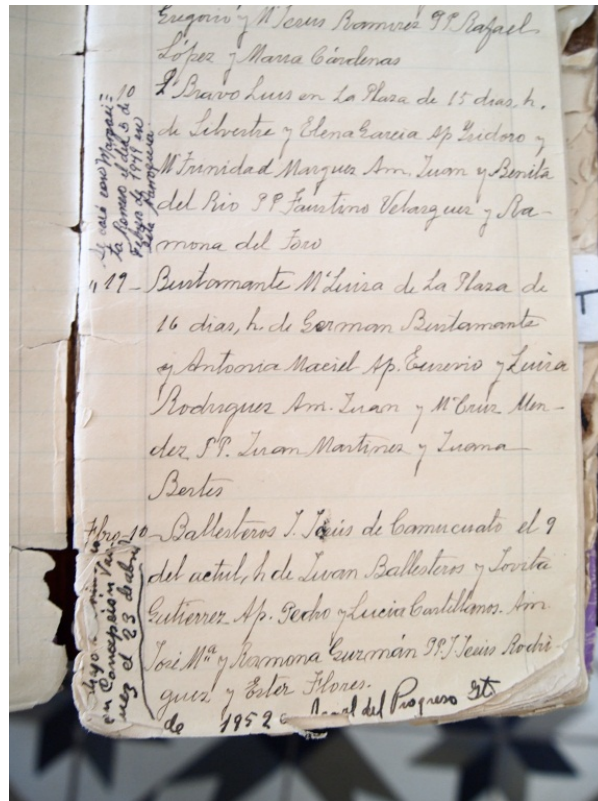 Gregorio y Mª Jesus Ramirez PP Rafael
López y Maria Cárdenas
10 Bravo Luis en La Plaza de 15 dias, h.
de Silvestre y Elena Garcia Ap Isidoro y
Mª Trinidad Marquez Am. Juan y Benita
del Rio PP Faustino Velazquez y Ra-
mona del Toro
Se casó con Margari-
ta Romero el día 3 de
Febrero de 1949 en
esta Parroquia.
" 19- Bustamante Mª Luisa de La Plaza de
16 dias, h. de German Bustamante
y Antonia Maciel Ap. Eusevio y Luisa
Rodriguez Am. Juan y Mª Cruz Men-
dez PP. Juan Martinez y Juana
Bertes
Fbro-10- Ballesteros J. Jesús de Camucuato el 9
del actul, h de Juan Ballesteros y Jovita
Gutierrez Ap. Pedro y Lucia Castillanos. Am.
José Mª y Ramona Guzmán PP. J Jesus Rodri-
guez y Ester Flores.
en Concepción
el 23 de abril
de 1952 Aznal del Progreso Gt
T